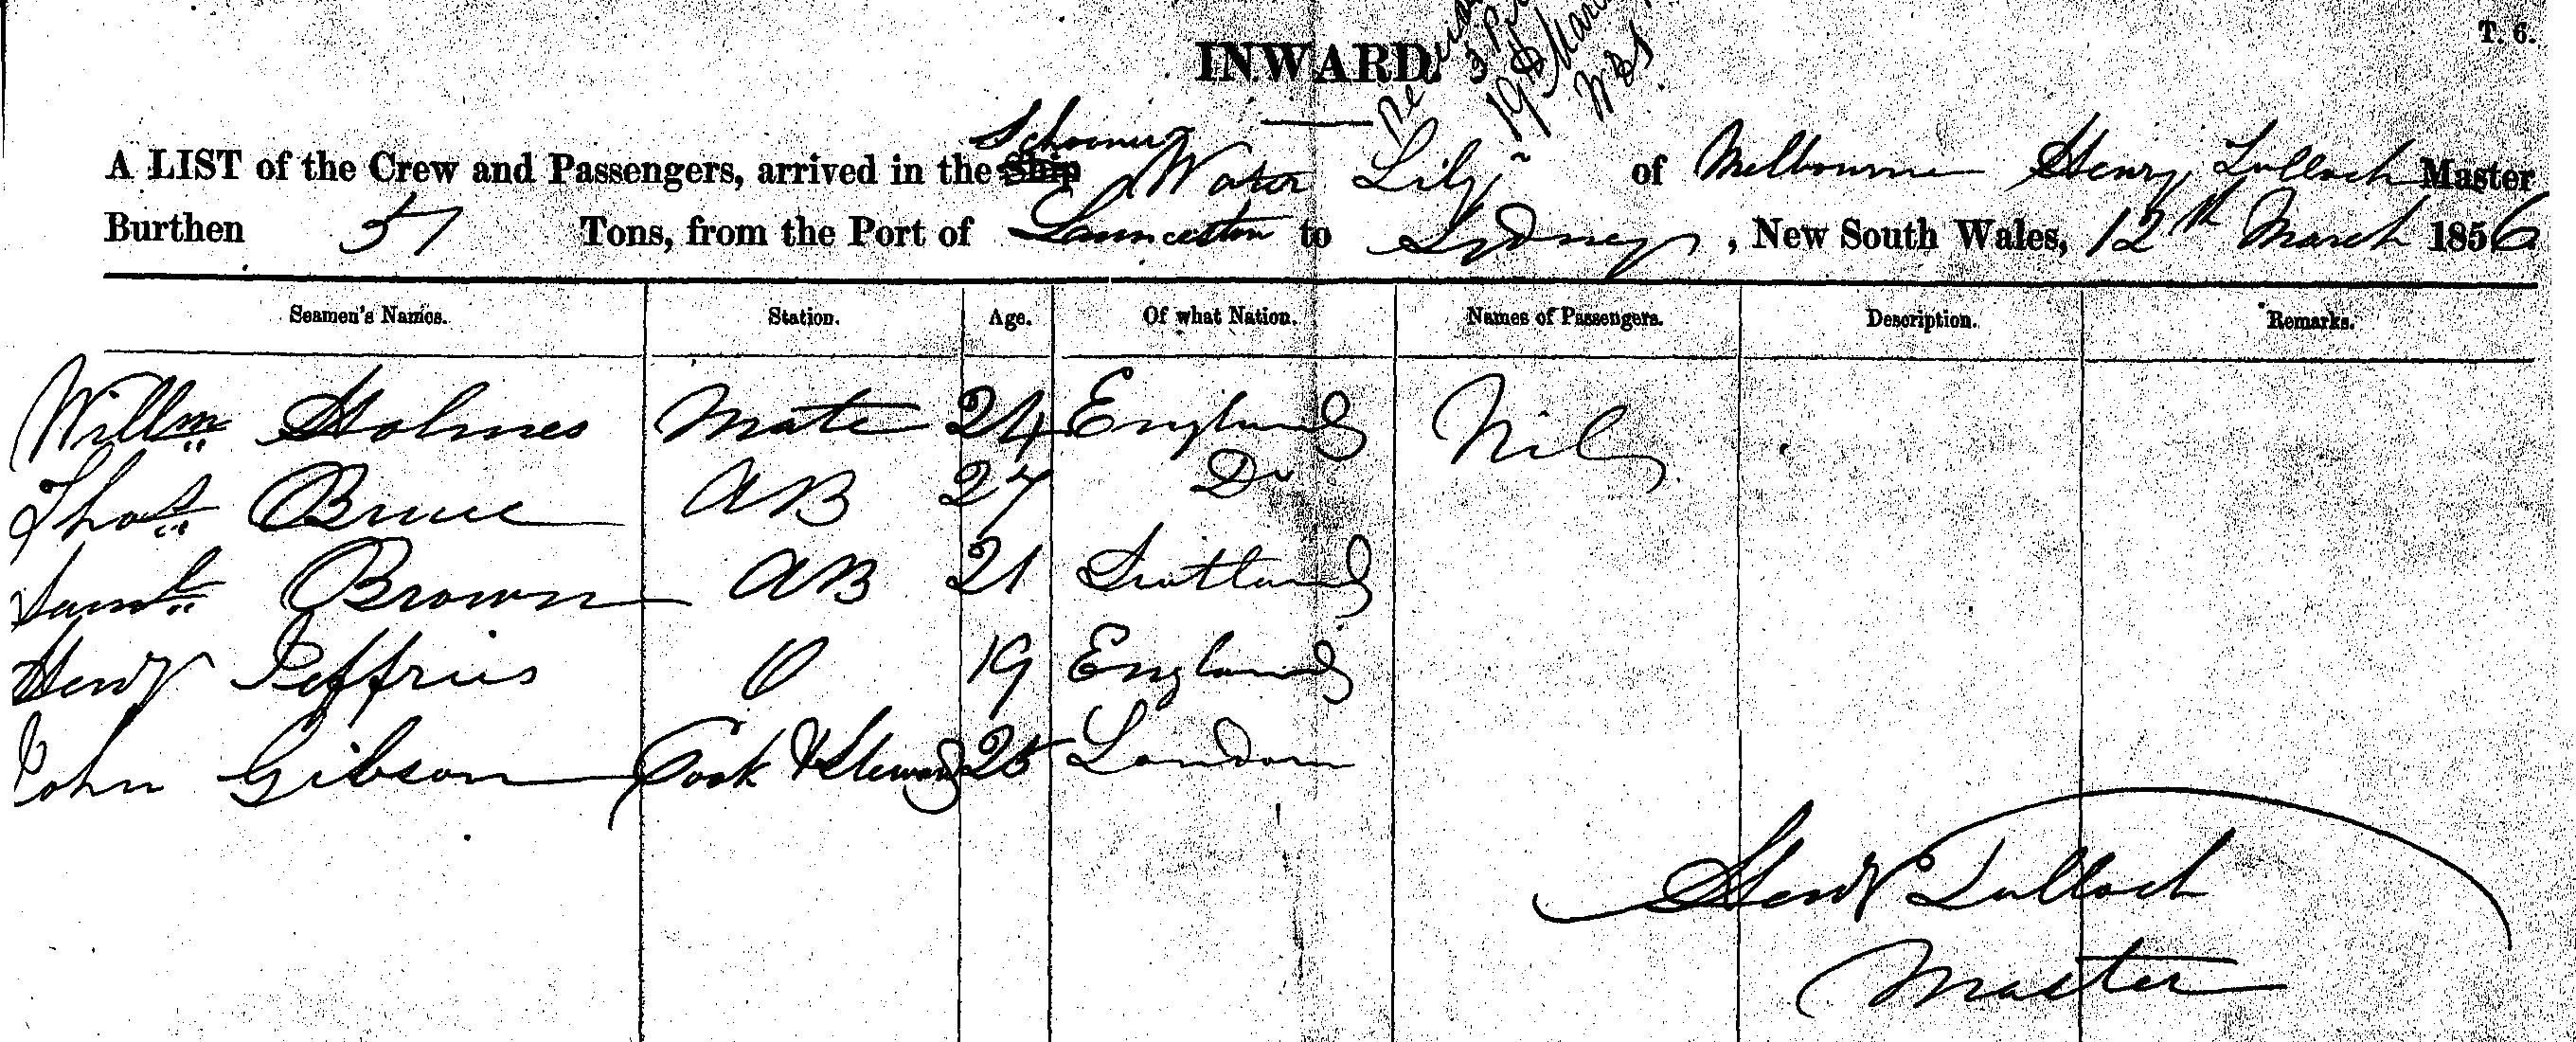 T. 6.
INWARD.
19 March
WBS
Schooner
A LIST of the Crew and Passengers, arrived in the Ship Water Lily of Melbourne Henry Tulloch Master
Burthen 57 Tons, from the Port of Launceston to Sydney, New South Wales, 12th March 1856
Seamen's Names. Station. Age. Of what Nation. Names of Passengers. Description. Remarks.
Willm Holmes Mate 24 England Nil
Thos Bruce AB 27 Do
Saml Brown AB 21 Scotland
Henry Jeffries O 19 England
John Gibson Cook & Steward 25 London
Henry Tulloch
Master